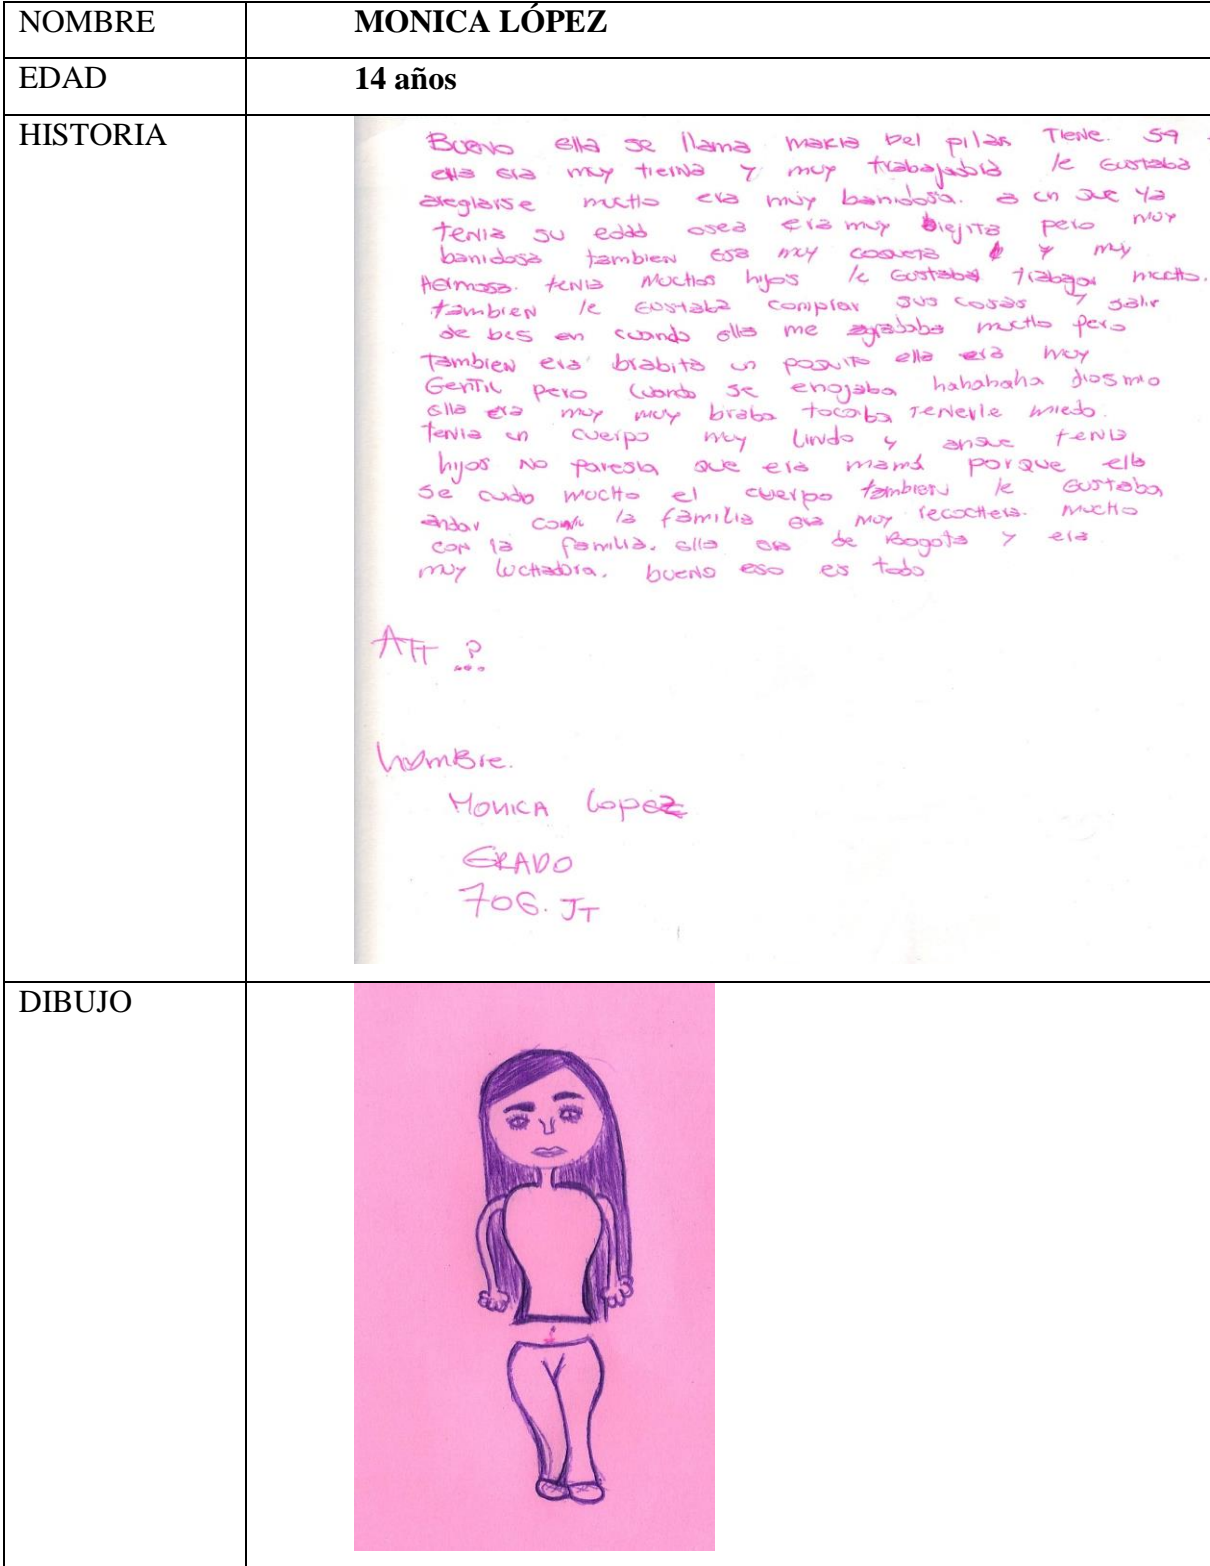 NOMBRE MONICA LÓPEZ
EDAD 14 años
HISTORIA
Bueno ella se llama maria Del pilar Tiene. 59
ella era muy tierna y muy trabajadora le Gustaba
areglarse mucho era muy banidosa. a un que ya
tenia su edad osea era muy biejita pero muy
banidosa tambien era muy coqueta y muy
Hermosa. tenia muchos hijos le Gustaba trabajar mucho.
tambien le Gustaba comprar sus cosas y salir
de bes en cuando ella me agradaba mucho pero
tambien era brabita un poquito ella era muy
Gentil pero cuando se enojaba hahahaha dios mio
ella era muy muy braba tocaba tenerle miedo.
tenia un cuerpo muy lindo y anque tenia
hijos no paresia que era mamá porque ella
se cuido mucho el cuerpo tambien le Gustaba
andar con la familia era muy recochera. mucho
con la familia. ella era de Bogota y era
muy luchadora. bueno eso es todo
ATT ?...
Nombre.
Monica Lopez
GRADO
706. JT
DIBUJO